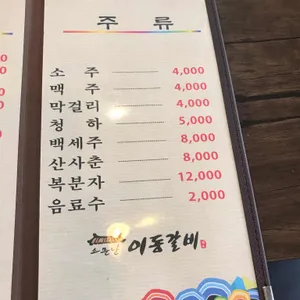 주 류
소 주 4,000
맥 주 4,000
막걸리 4,000
청 하 5,000
백세주 8,000
산사춘 8,000
복분자 12,000
음료수 2,000
소문난 이동갈비